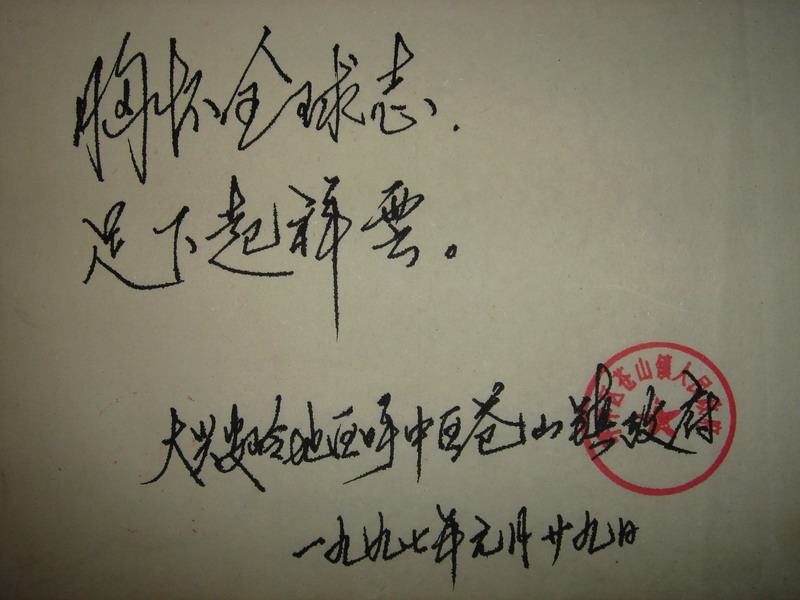 胸怀全球志.
足下起祥雲。
大兴安岭地区呼中区苍山镇政府
一九九七年元月廿九日
苍山镇人民政府